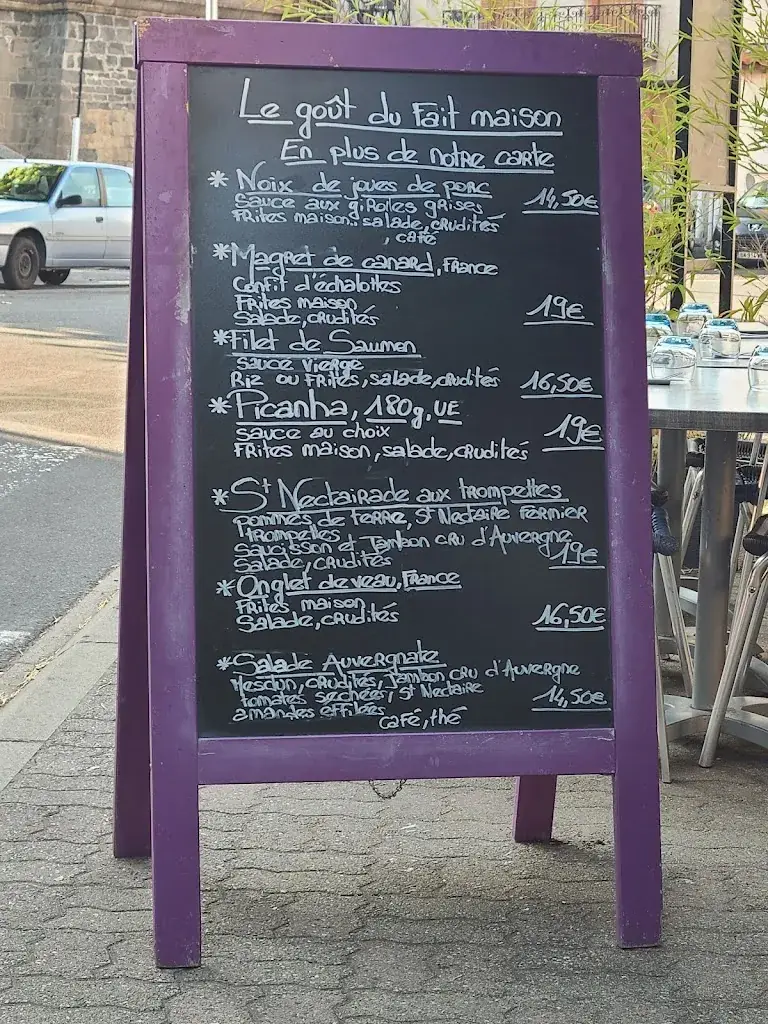 Le goût du Fait maison
En plus de notre carte
* Noix de joues de porc 14,50€
Sauce aux giRolles gRises
FRites maison.. salade, cRudités
, café
* Magret de canard, France
Confit d'échalottes
Frites maison
Salade, cRudités 19€
* Filet de Saumon
sauce vierge
Riz ou FRites, salade, cRudités 16,50€
* Picanha, 180g, UE
sauce au choix 19€
FRites maison, salade, cRudités
* St Nectairade aux trompettes
pommes de terre, St Nectaire FeRmier
trompettes
saucisson et Jambon cRu d'Auvergne
Salade, cRudités 19€
* Onglet de veau, France
FRites, maison
Salade, cRudités 16,50€
* Salade Auvergnate
Mesclun, cRudités, Jambon cRu d'Auvergne
tomates séchées, St Nectaire
amandes effilées 14,50€
café, thé